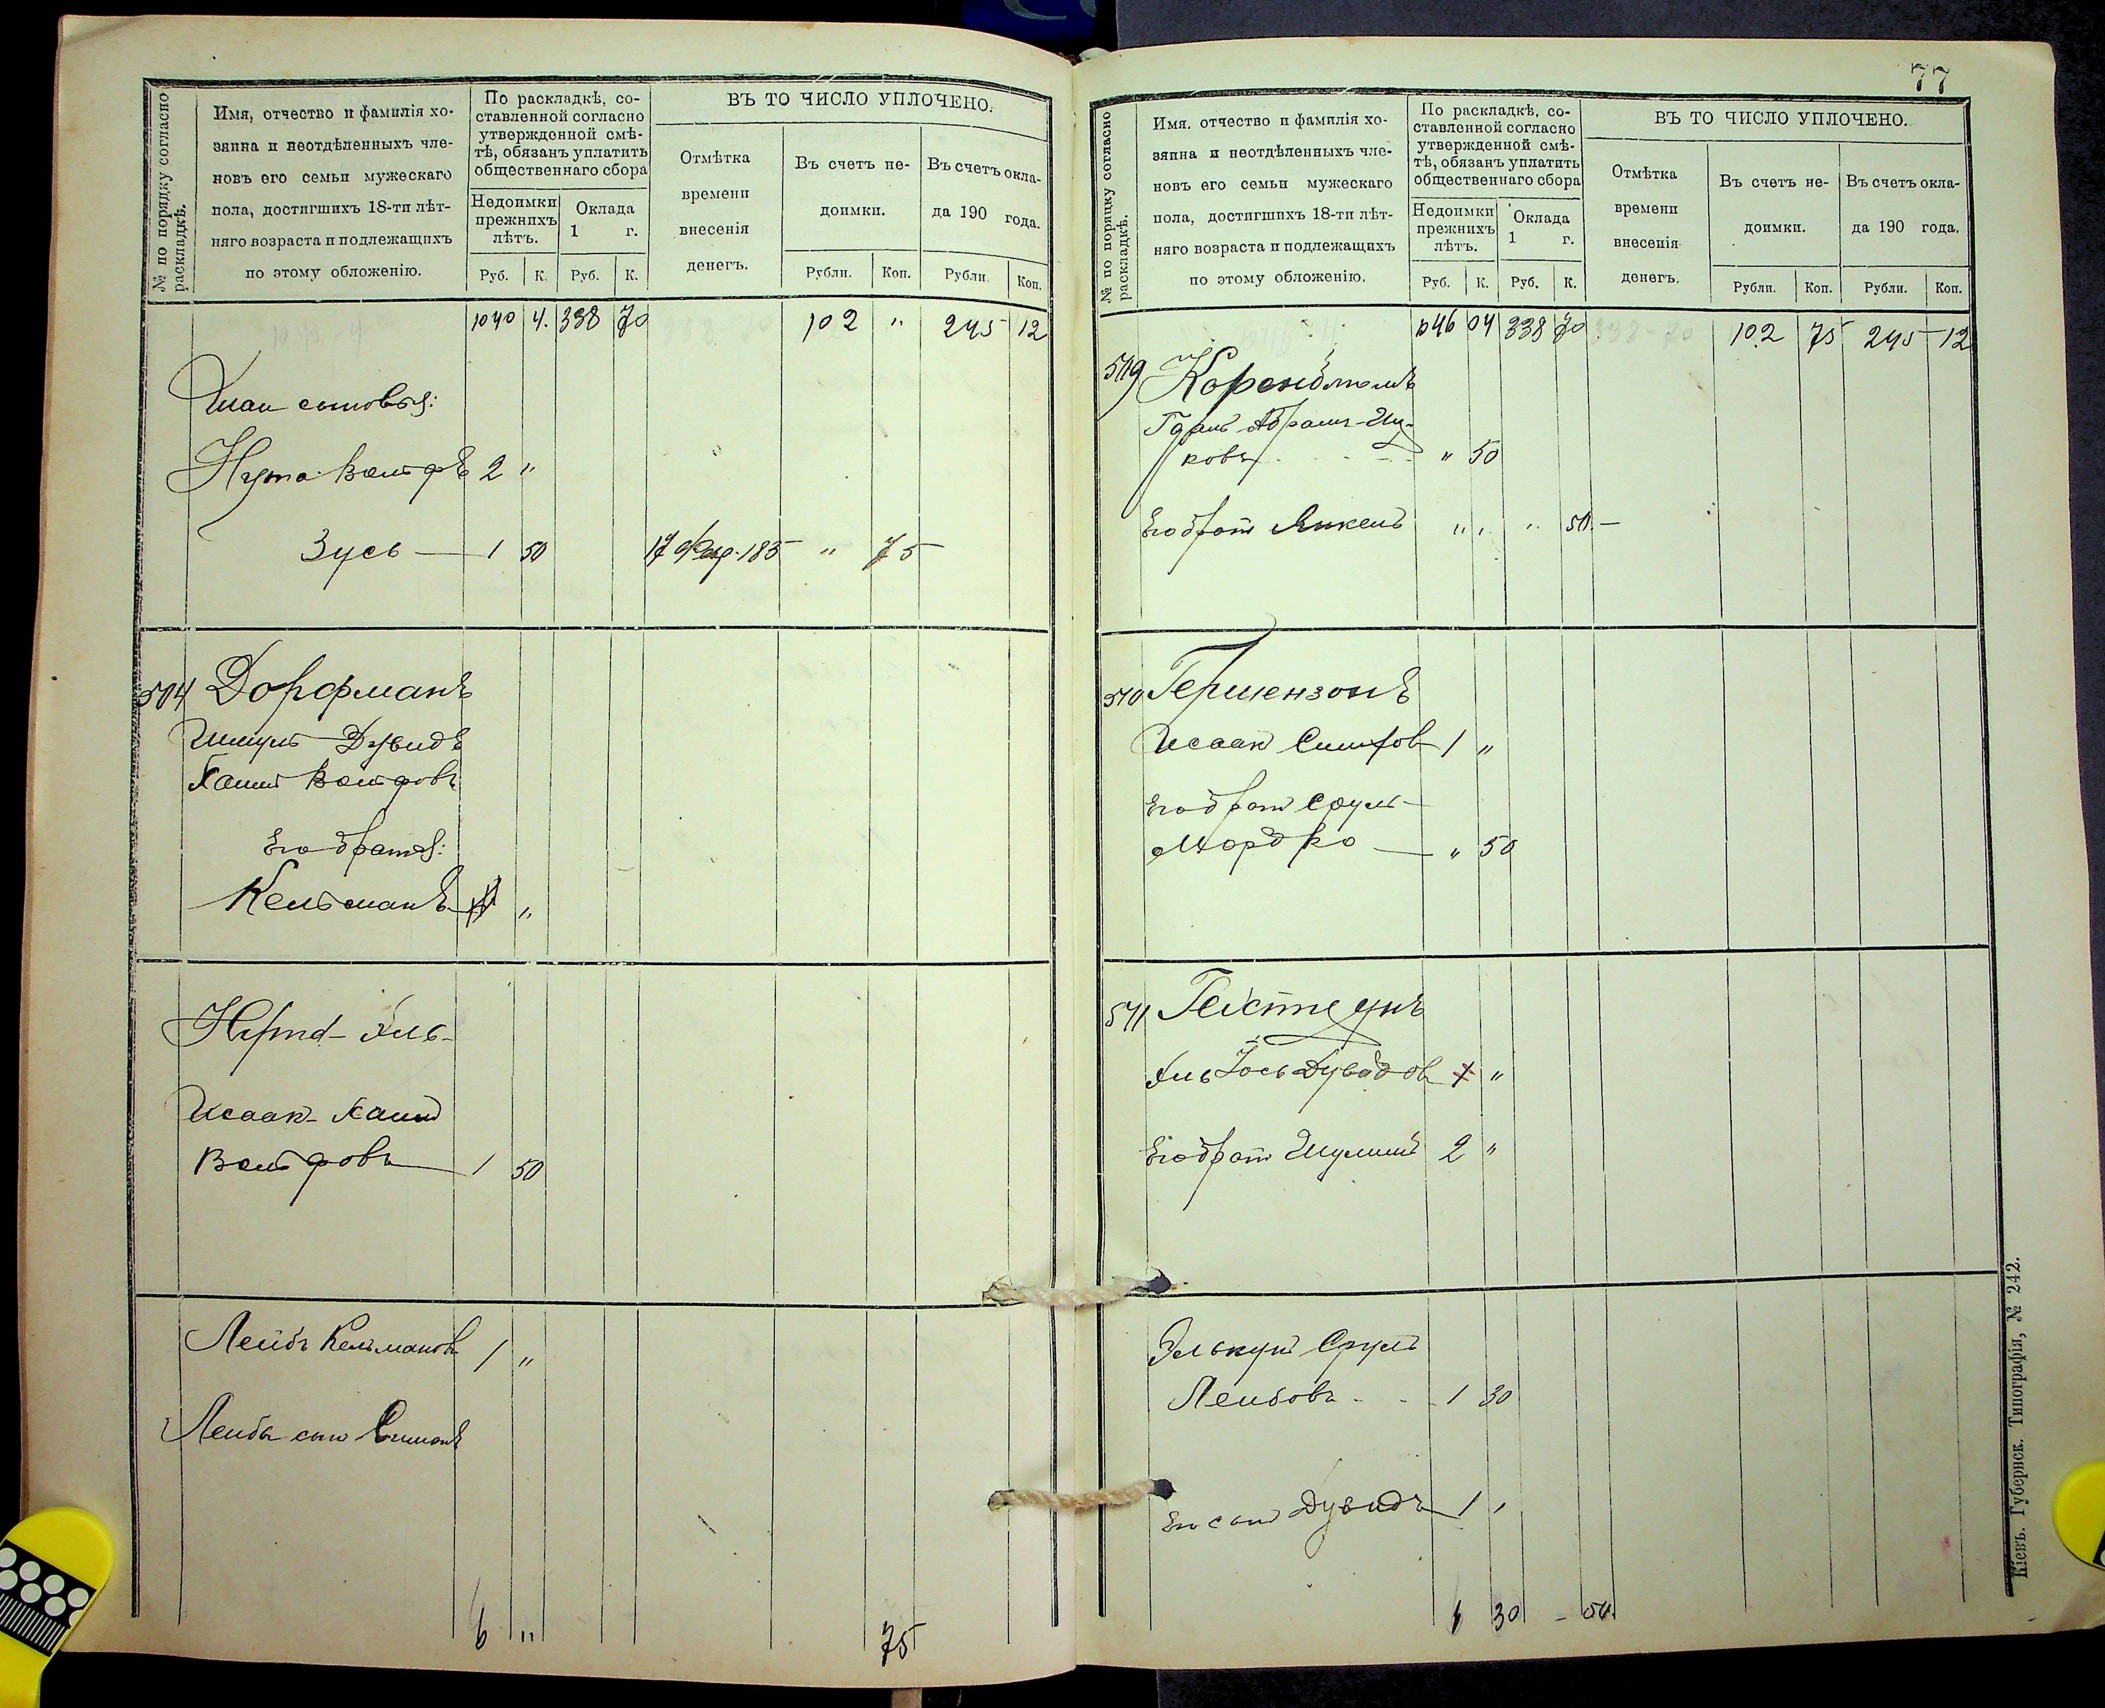 № по порядку согласно раскладкѣ.
Имя, отчество и фамилія хо-
зяина и неотдѣленныхъ чле-
новъ его семьи мужескаго
пола, достигшихъ 18-ти лѣт-
няго возраста и подлежащихъ
по этому обложенію.
По раскладкѣ, со-
ставленной согласно
утвержденной смѣ-
тѣ, обязанъ уплатить
общественнаго сбора
Недоимки
прежнихъ
лѣтъ.
Оклада
1 г.
Руб. К. Руб. К.
ВЪ ТО ЧИСЛО УПЛОЧЕНО.
Отмѣтка
времени
внесенія
денегъ.
Въ счетъ не-
доимки.
Въ счетъ окла-
да 190 года.
Рубли. Коп. Рубли. Коп.
1040 4. 338 70 102 " 245 12
сыновья:
Нута Вольфъ 2 "
Зусь — 1 50 17 185 " 75
504 Дорфманъ
Шмуль Дувидъ
Хаим Вольфовъ
Его братья:
Кельманъ "
Исаак-Хаим
Вольфовъ 1 50
Лейбъ Кельманов 1 "
Лейбы сын Симонъ
6 " 75
77
№ по порядку согласно раскладкѣ.
Имя, отчество и фамилія хо-
зяина и неотдѣленныхъ чле-
новъ его семьи мужескаго
пола, достигшихъ 18-ти лѣт-
няго возраста и подлежащихъ
по этому обложенію.
По раскладкѣ, со-
ставленной согласно
утвержденной смѣ-
тѣ, обязанъ уплатить
общественнаго сбора
Недоимки
прежнихъ
лѣтъ.
Оклада
1 г.
Руб. К. Руб. К.
ВЪ ТО ЧИСЛО УПЛОЧЕНО.
Отмѣтка
времени
внесенія
денегъ.
Въ счетъ не-
доимки.
Въ счетъ окла-
да 190 года.
Рубли. Коп. Рубли. Коп.
1046 04 338 70 102 75 245 12
509
Абрам-Иц-
ковъ " 50
Его брат Янкель " " " 50 —
510 Гершензонъ
Исаак 1 "
Его брат Сруль-
Мордко — " 50
511
Дувидов "
Его брат Шулим 2 "
Элькун Сруль
Лейбовъ 1 30
Его сын Дувидъ 1 "
30 - 50
Кіевъ. Губернск. Типографія, № 242.